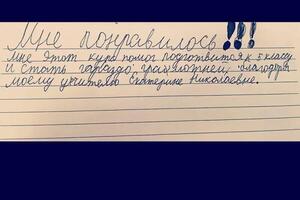 Мне понравилось!!!
Мне этот курс помог подготовится к 5 классу
и стать гораздо грамотней, благодаря
моему учителю Екатерине Николаевне.